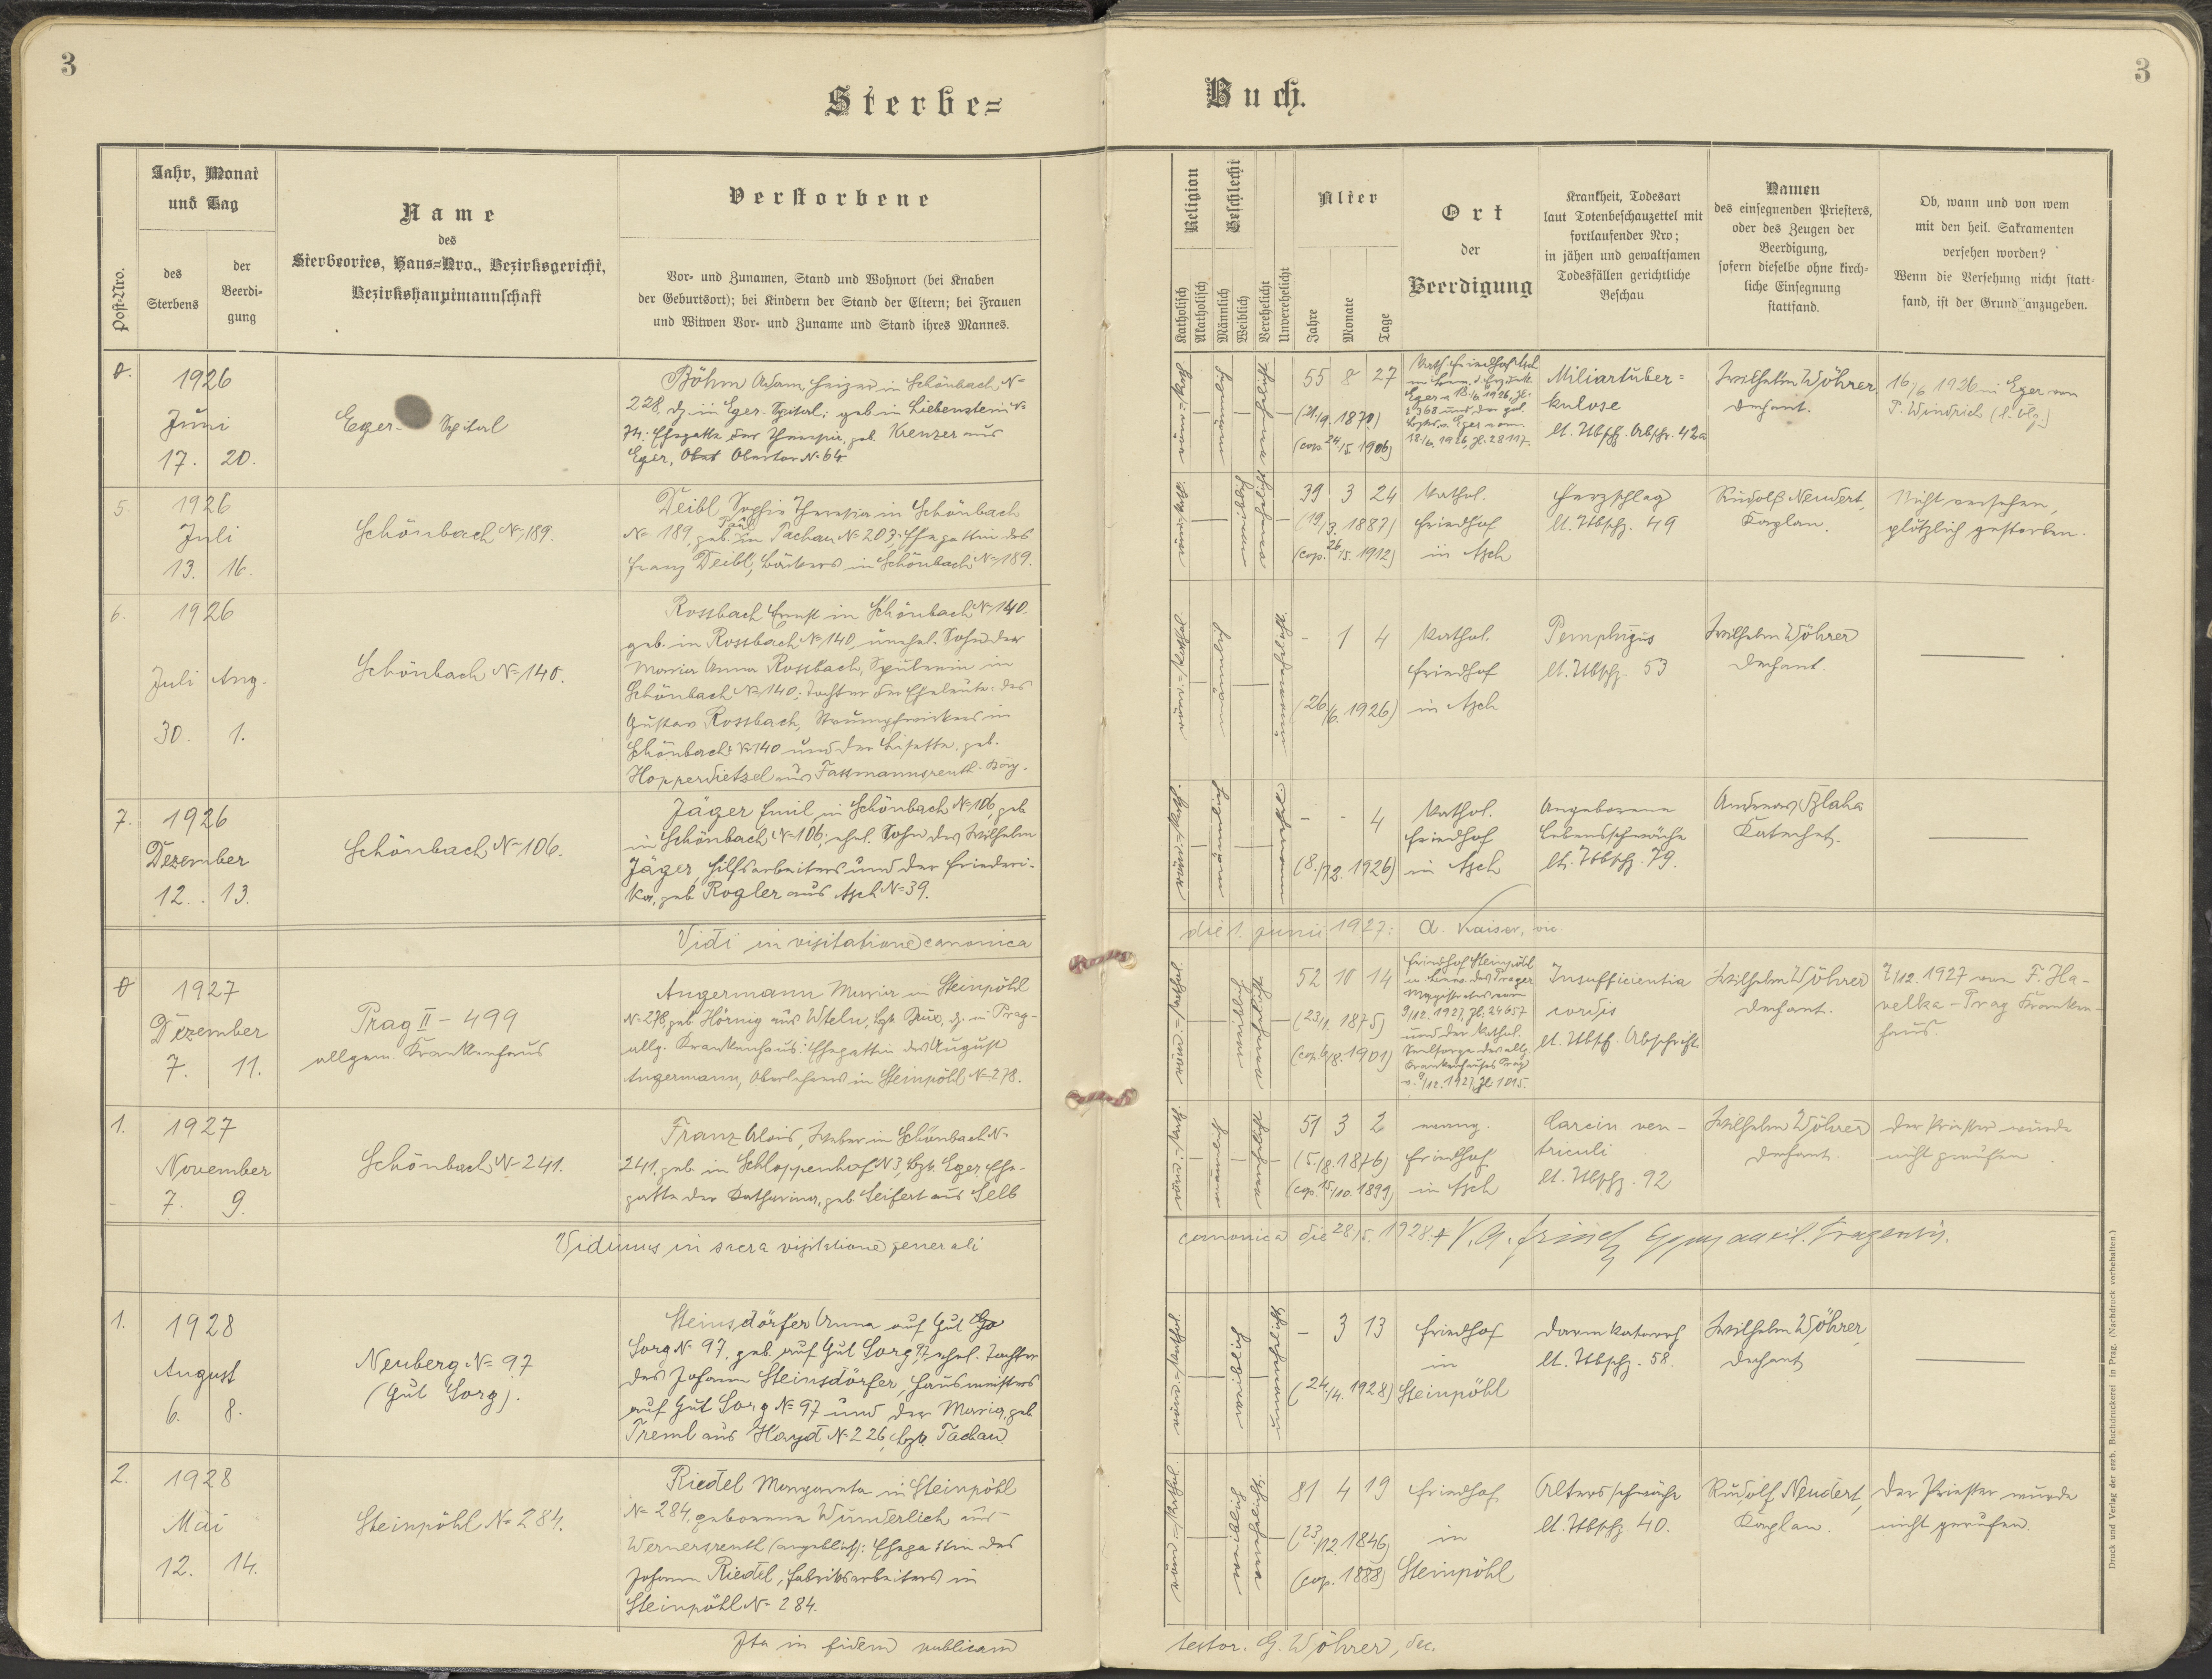 3
3
Sterbe=
Buch.
Post-Nro.
Jahr, Monat
und Tag
des
Sterbens
der
Beerdi-
gung
Name
des
Sterbeortes, Haus=Nro., Bezirksgericht,
Bezirkshauptmannschaft
Verstorbene
Vor- und Zunamen, Stand und Wohnort (bei Knaben
der Geburtsort); bei Kindern der Stand der Eltern; bei Frauen
und Witwen Vor- und Zuname und Stand ihres Mannes.
Religion
Katholisch
Akatholisch
Geschlecht
Männlich
Weiblich
Verehelicht
Unverehelicht
Alter
Jahre
Monate
Tage
Ort
der
Beerdigung
Krankheit, Todesart
laut Totenbeschauzettel mit
fortlaufender Nro;
in jähen und gewaltsamen
Todesfällen gerichtliche
Beschau
Namen
des einsegnenden Priesters,
oder des Zeugen der
Beerdigung,
sofern dieselbe ohne kirch-
liche Einsegnung
stattfand.
Ob, wann und von wem
mit den heil. Sakramenten
versehen worden?
Wenn die Versehung nicht statt-
fand, ist der Grund anzugeben.
1926
Juni
17. 20.
Eger- Spital
Böhm Adam Heizer in Schönbach N=
228, dz. in Eger-Spital; geb. in Liebenstein N=
74. Ehegatte der Theresia, geb. Krenzer aus
Eger, Obertor N=64
röm.=kath.
männlich
verehelicht
55 8 27
(21./9. 1870)
(cop. 24/5. 1906)
Kath. Friedhof Asch
Eger v. 18./6. 1926, Zl.
18./6. 1926, Zl. 28117.
Miliartuber=
kulose
lt. Abschr. 42a
Wilhelm Wöhrer,
Dechant.
16/6 1926 in Eger von
P. Windrich
5.
1926
Juli
13. 16.
Schönbach N=189.
Deibl Sophie Theresia in Schönbach
N= 189, geb. Paul in Tachau N=203; Ehegattin des
Franz Deibl, Bäckers in Schönbach N=189.
röm.=kath.
weiblich
verehelicht
39 3 24
(19/3. 1887)
(cop. 26/5. 1912)
Kathol.
Friedhof
in Asch
Herzschlag
lt. Tbschz. 49
Rudolf Neudert,
Kaplan.
Nicht versehen,
plötzlich gestorben.
6.
1926
Juli Aug.
30. 1.
Schönbach N=140.
Rossbach Ernst in Schönbach N=140,
geb. in Rossbach N=140, unehel. Sohn der
Maria Anna Rossbach, Spulerin in
Schönbach N=140; Tochter der Eheleute: des
Gustav Rossbach, Strumpfwirkers in
Schönbach N=140 und der Lisette, geb.
Hopperdietzel aus Fassmannsreuth-
röm.=kathol.
männlich
unverehelicht
- 1 4
(26./6. 1926)
Kathol.
Friedhof
in Asch
Pemphigus
lt. Tbschz. 53
Wilhelm Wöhrer
Dechant.
7.
1926
Dezember
12. 13.
Schönbach N=106.
Jäger Emil in Schönbach N=106, geb.
in Schönbach N=106; ehel. Sohn des Wilhelm
Jäger, Hilfsarbeiters und der Friederi-
ka, geb. Rogler aus Asch N=39.
röm.=kath.
männlich
unverehelicht
- - 4
(8./12. 1926)
Kathol.
Friedhof
in Asch
Angeborene
Lebensschwäche
lt. Tbschz. 79.
Andreas Blaha
Katechet.
Vidi in visitatione canonica die 1. junii 1927: A. Kaiser, vic.
1927
Dezember
7. 11.
Prag II - 499
allgem. Krankenhaus
Angermann Maria in Steinpöhl
N=278, geb. Hörnig aus Wteln, Bzk. Brüx, dz. in Prag-
allg. Krankenhaus: Ehegattin des August
Angermann, Oberlehrers in Steinpöhl N=278.
röm.=kathol.
weiblich
verehelicht
52 10 14
(23/1. 1875)
(cop. 6/8. 1901)
Friedhof Steinpöhl
Magistrates vom
9/12. 1927, Zl. 24657
und der kathol.
Seelsorge des allg.
Krankenhauses Prag
v. 9/12. 1927, Zl. 1015.
Insufficientia
cordis
lt. Tbsch. Abschrift
Wilhelm Wöhrer
Dechant.
7/12. 1927 von F. Ha-
velka - Prag Kranken-
haus.
1.
1927
November
7. 9.
Schönbach N=241.
Franz Alois, Weber in Schönbach N=
241, geb. in Schloppenhof N3, Bzk. Eger, Ehe-
gatte der Katharina, geb. Seifert aus Selb
röm.=kath.
männlich
verehelicht
51 3 2
(5./8. 1876)
(cop. 15/10. 1899)
evang.
Friedhof
in Asch
Carcin. ven-
triculi
lt. Tbschz. 92
Wilhelm Wöhrer
Dechant.
Der Priester wurde
nicht gerufen.
Vidimus in sacra visitatione generali canonica die 28./5. 1928.
1.
1928
August
6. 8.
Neuberg N=97
(Gut Sorg).
Steinsdörfer Anna auf Gut
Sorg N=97, geb. auf Gut Sorg 97, ehel. Tochter
des Johann Steinsdörfer, Hausmeisters
auf Gut Sorg N=97 und der Maria, geb.
Treml aus Hayd N=226, Bzk. Tachau.
röm.=kathol.
weiblich
unverehelicht
- 3 13
(24./4. 1928)
Friedhof
in
Steinpöhl
Darmkatarrh
lt. Tbschz. 58.
Wilhelm Wöhrer,
Dechant
2.
1928
Mai
12. 14.
Steinpöhl No 284.
Riedel Margareta in Steinpöhl
N=284, geborene Wunderlich aus
Wernersreuth (angeblich): Ehegattin des
Johann Riedel, Fabriksarbeiters in
Steinpöhl N=284.
röm.=kathol.
weiblich
verehelicht
81 4 19
(23/12. 1846)
(cop. 1888)
Friedhof
in
Steinpöhl
Altersschwäche
lt. Tbschz. 40.
Rudolf Neudert,
Kaplan.
Der Priester wurde
nicht gerufen.
Ita in fidem publicam testor. G. Wöhrer, dec.
Druck und Verlag der erzb. Buchdruckerei in Prag. (Nachdruck vorbehalten.)